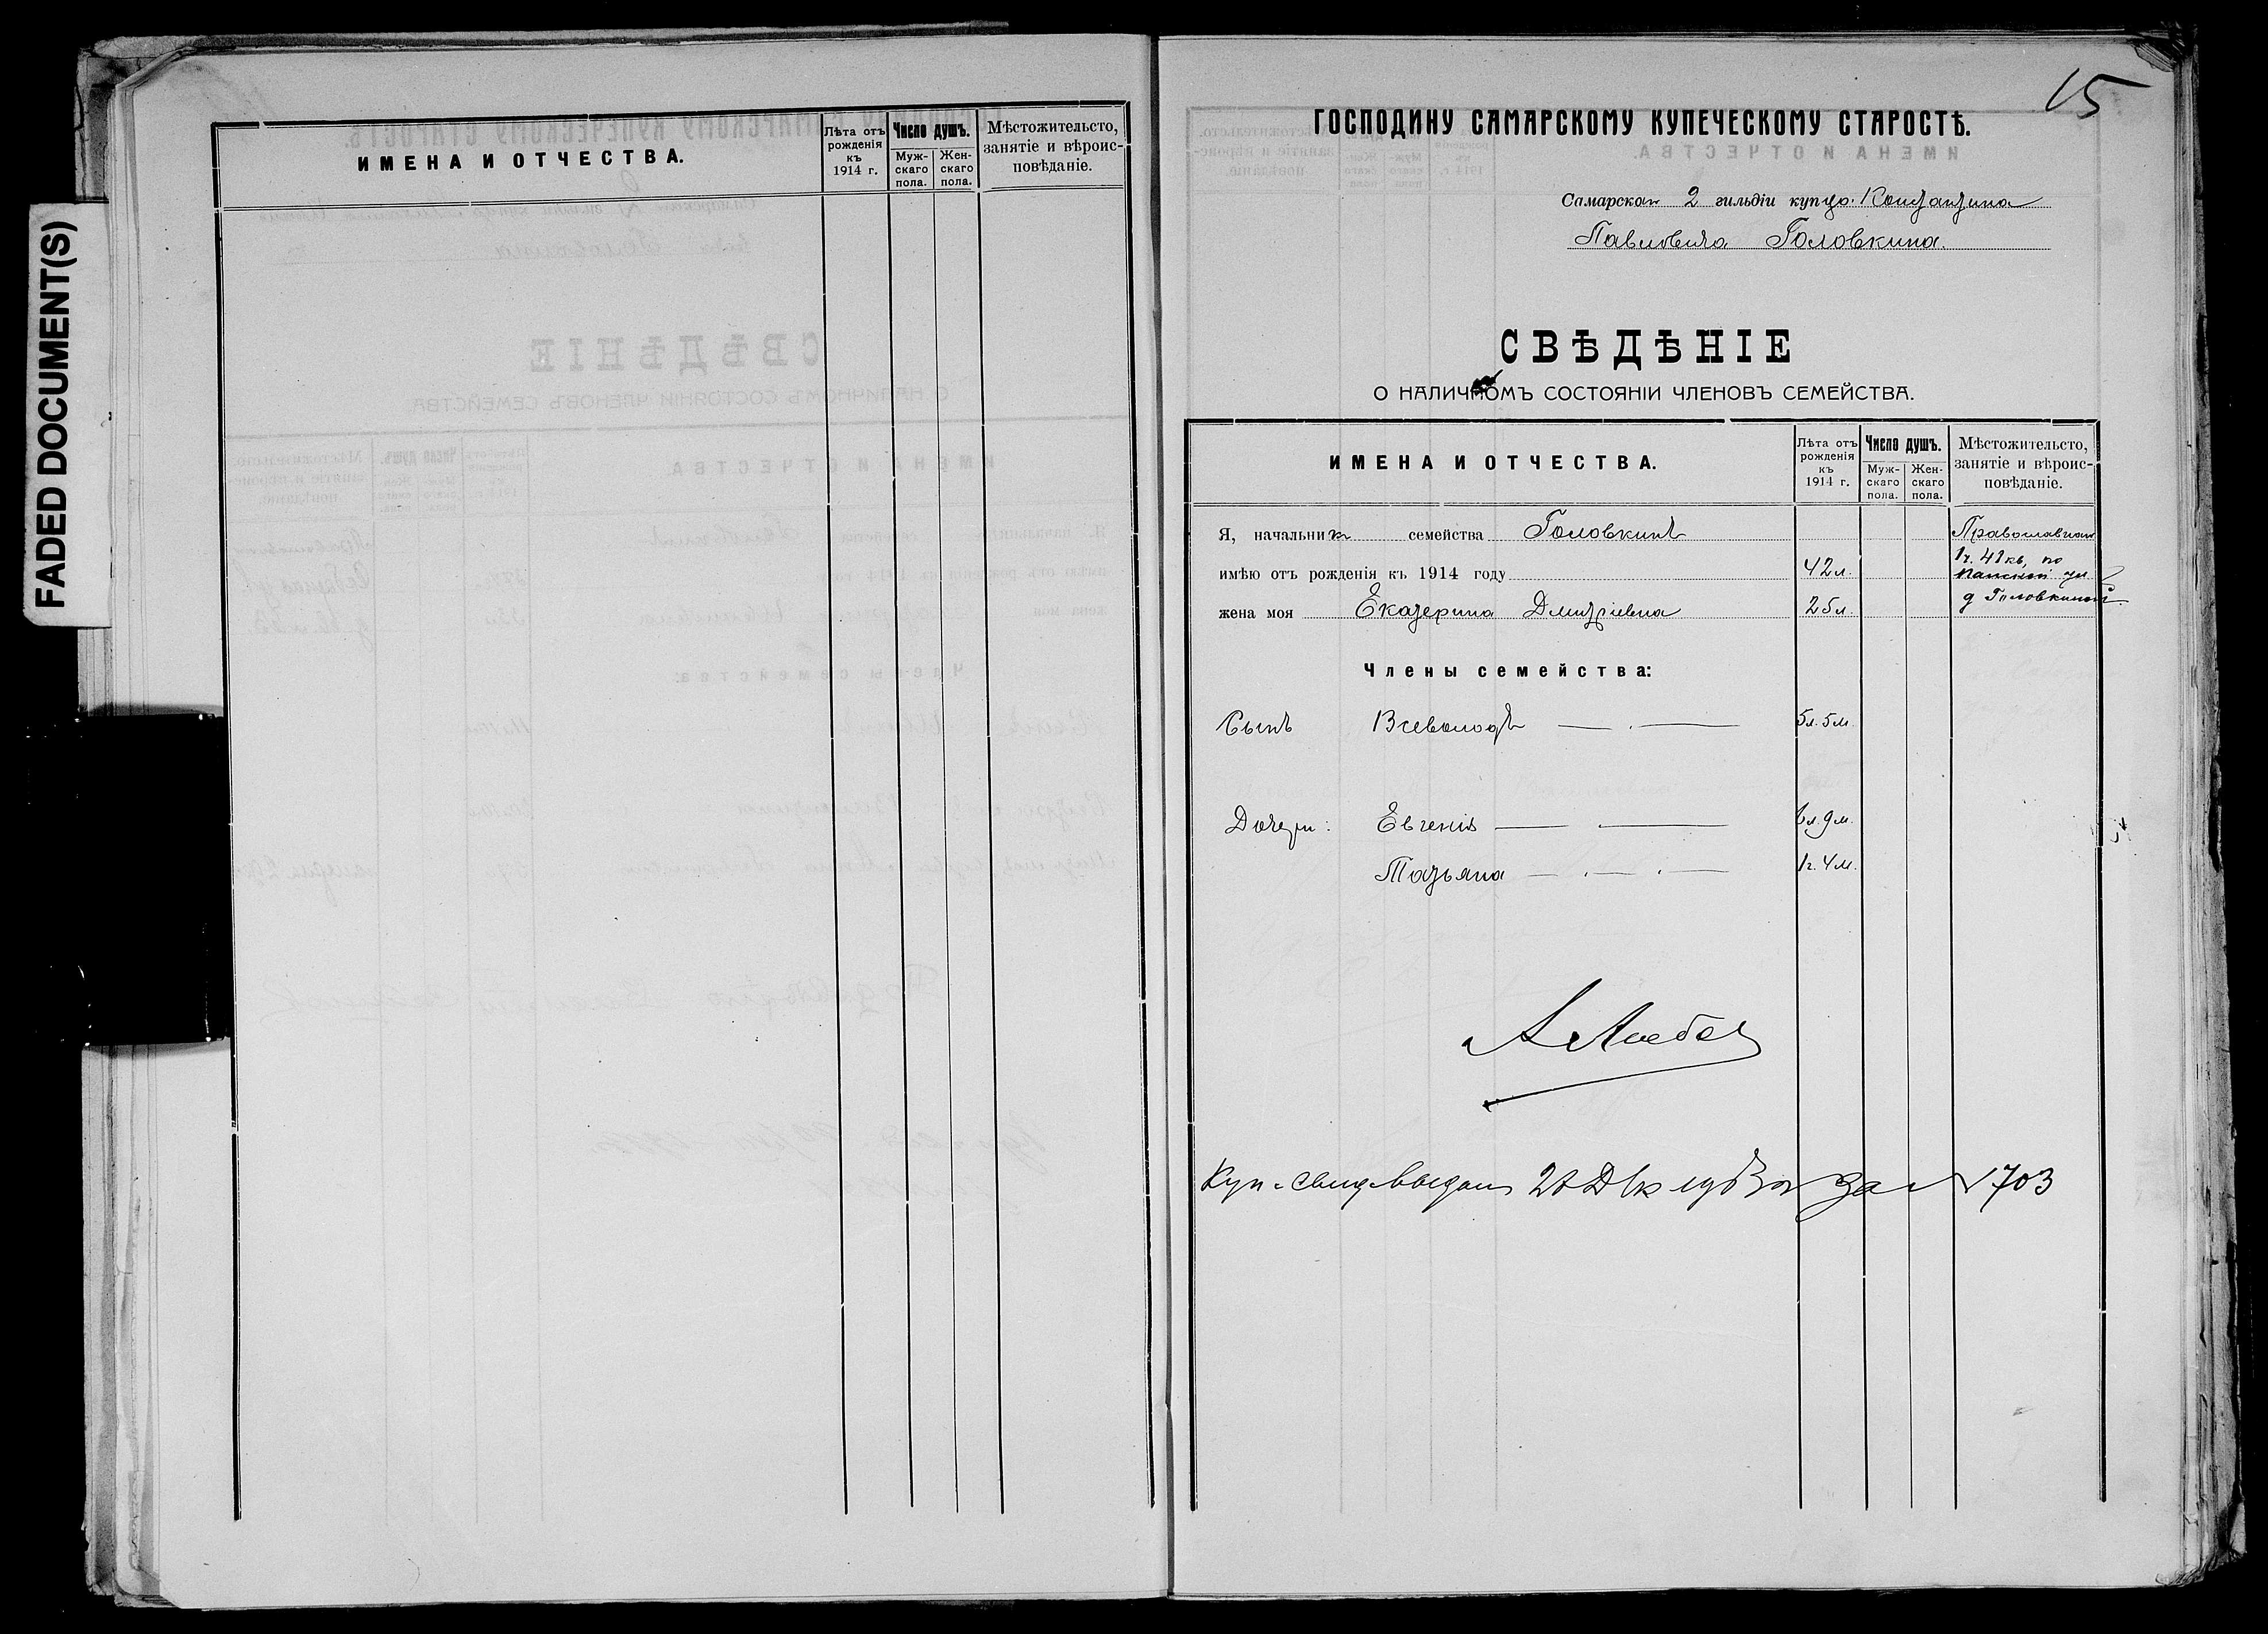 FADED DOCUMENT(S)
ИМЕНА И ОТЧЕСТВА.
Лѣта отъ рожденія къ 1914 г.
Число душъ.
Муж-скаго пола.
Жен-скаго пола.
Мѣстожительсто, занятіе и вѣроис-повѣданіе.
15
ГОСПОДИНУ САМАРСКОМУ КУПЕЧЕСКОМУ СТАРОСТѢ.
Самарскаго 2 гильдіи купца Константина
Павловича Головкина.
СВѢДѢНІЕ
О НАЛИЧНОМЪ СОСТОЯНІИ ЧЛЕНОВЪ СЕМЕЙСТВА.
ИМЕНА И ОТЧЕСТВА.
Лѣта отъ рожденія къ 1914 г.
Число душъ.
Муж-скаго пола.
Жен-скаго пола.
Мѣстожительсто, занятіе и вѣроис-повѣданіе.
Я, начальникъ семейства Головкинъ Православная
имѣю отъ рожденія къ 1914 году 42 л. 1ч. 41 кв, по
Панской ул.
жена моя Екатерина Дмитріевна 25 л. д Головкиной
Члены семейства:
Сынъ Всеволодъ 5 л. 5 м.
Дочери: Евгенія 6 л. 9 м.
Татьяна 1 г. 4 м.
Куп. свид выдано за № 1703